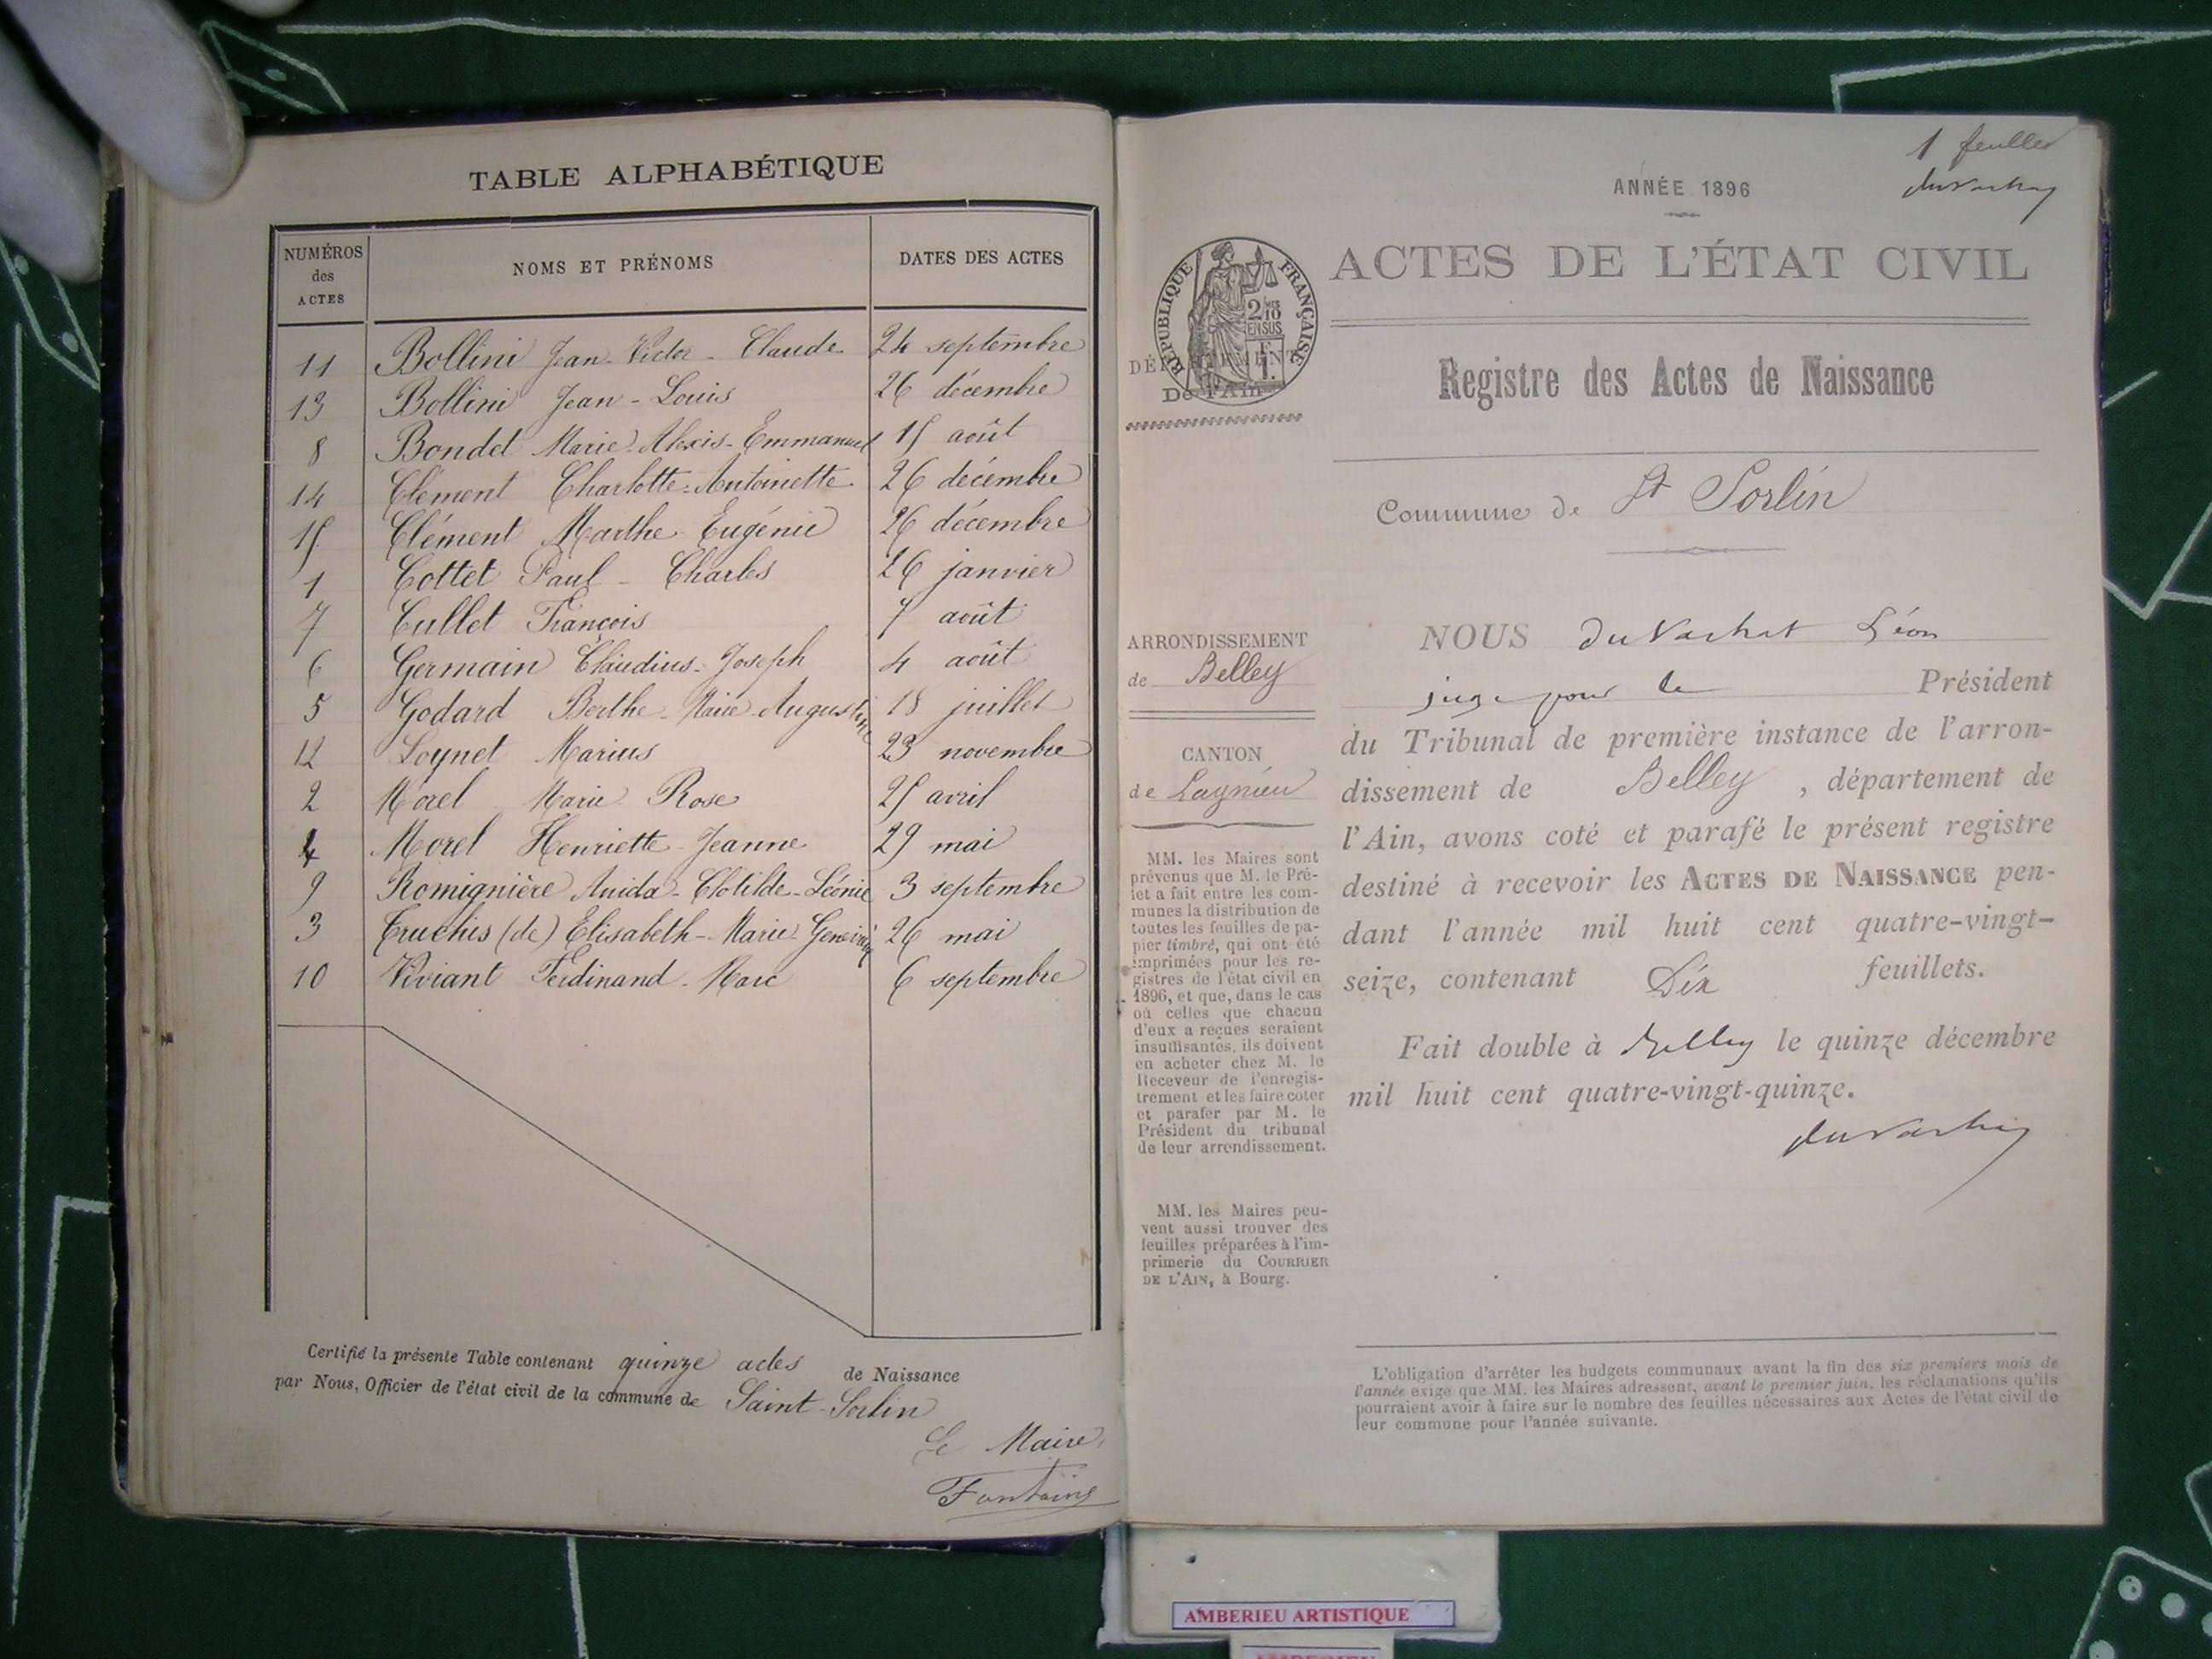 TABLE ALPHABÉTIQUE
NUMÉROS des ACTES
NOMS ET PRÉNOMS
DATES DES ACTES
11 Bollini Jean-Victor-Claude 24 septembre
13 Bollini Jean-Louis 26 décembre
8 Bondet Marie-Alexis-Emmanuel 15 août
14 Clément Charlotte-Antoinette 26 décembre
15 Clément Marthe-Eugénie 26 décembre
1 Cottet Paul-Charles 26 janvier
7 Cullet François 7 août
6 Germain Claudius-Joseph 4 août
5 Godard Berthe-Marie-Augustine 18 juillet
12 Loynet Marius 23 novembre
2 Morel Marie Rose 25 avril
4 Morel Henriette-Jeanne 29 mai
9 Romignière Anida-Clotilde-Léonie 3 septembre
3 Truchis (de) Elisabeth-Marie-Geneviève 26 mai
10 Viviant Ferdinand-Marc 6 septembre
Certifié la présente Table contenant quinze actes de Naissance
par Nous, Officier de l'état civil de la commune de Saint-Sorlin
Le Maire,
Fontaine
1 feuillet
ANNÉE 1896
ACTES DE L'ÉTAT CIVIL
RÉPUBLIQUE FRANÇAISE
2/10
EN SUS
DÉPARTEMENT
De l'Ain
Registre des Actes de Naissance
Commune de St Sorlin
ARRONDISSEMENT
de Belley
CANTON
de Lagnieu
MM. les Maires sont
prévenus que M. le Pré-
fet a fait entre les com-
munes la distribution de
toutes les feuilles de pa-
pier timbré, qui ont été
imprimées pour les re-
gistres de l'état civil en
1896, et que, dans le cas
où celles que chacun
d'eux a reçues seraient
insuffisantes, ils doivent
en acheter chez M. le
Receveur de l'enregis-
trement et les faire coter
et parafer par M. le
Président du tribunal
de leur arrondissement.
MM. les Maires peu-
vent aussi trouver des
feuilles préparées à l'im-
primerie du COURRIER
DE L'AIN, à Bourg.
NOUS Du Vachat Léon
juge pour le Président
du Tribunal de première instance de l'arron-
dissement de Belley, département de
l'Ain, avons coté et parafé le présent registre
destiné à recevoir les ACTES DE NAISSANCE pen-
dant l'année mil huit cent quatre-vingt-
seize, contenant Dix feuillets.
Fait double à Belley le quinze décembre
mil huit cent quatre-vingt-quinze.
L'obligation d'arrêter les budgets communaux avant la fin des six premiers mois de
l'année exige que MM. les Maires adressent, avant le premier juin, les réclamations qu'ils
pourraient avoir à faire sur le nombre des feuilles nécessaires aux Actes de l'état civil de
leur commune pour l'année suivante.
AMBERIEU ARTISTIQUE